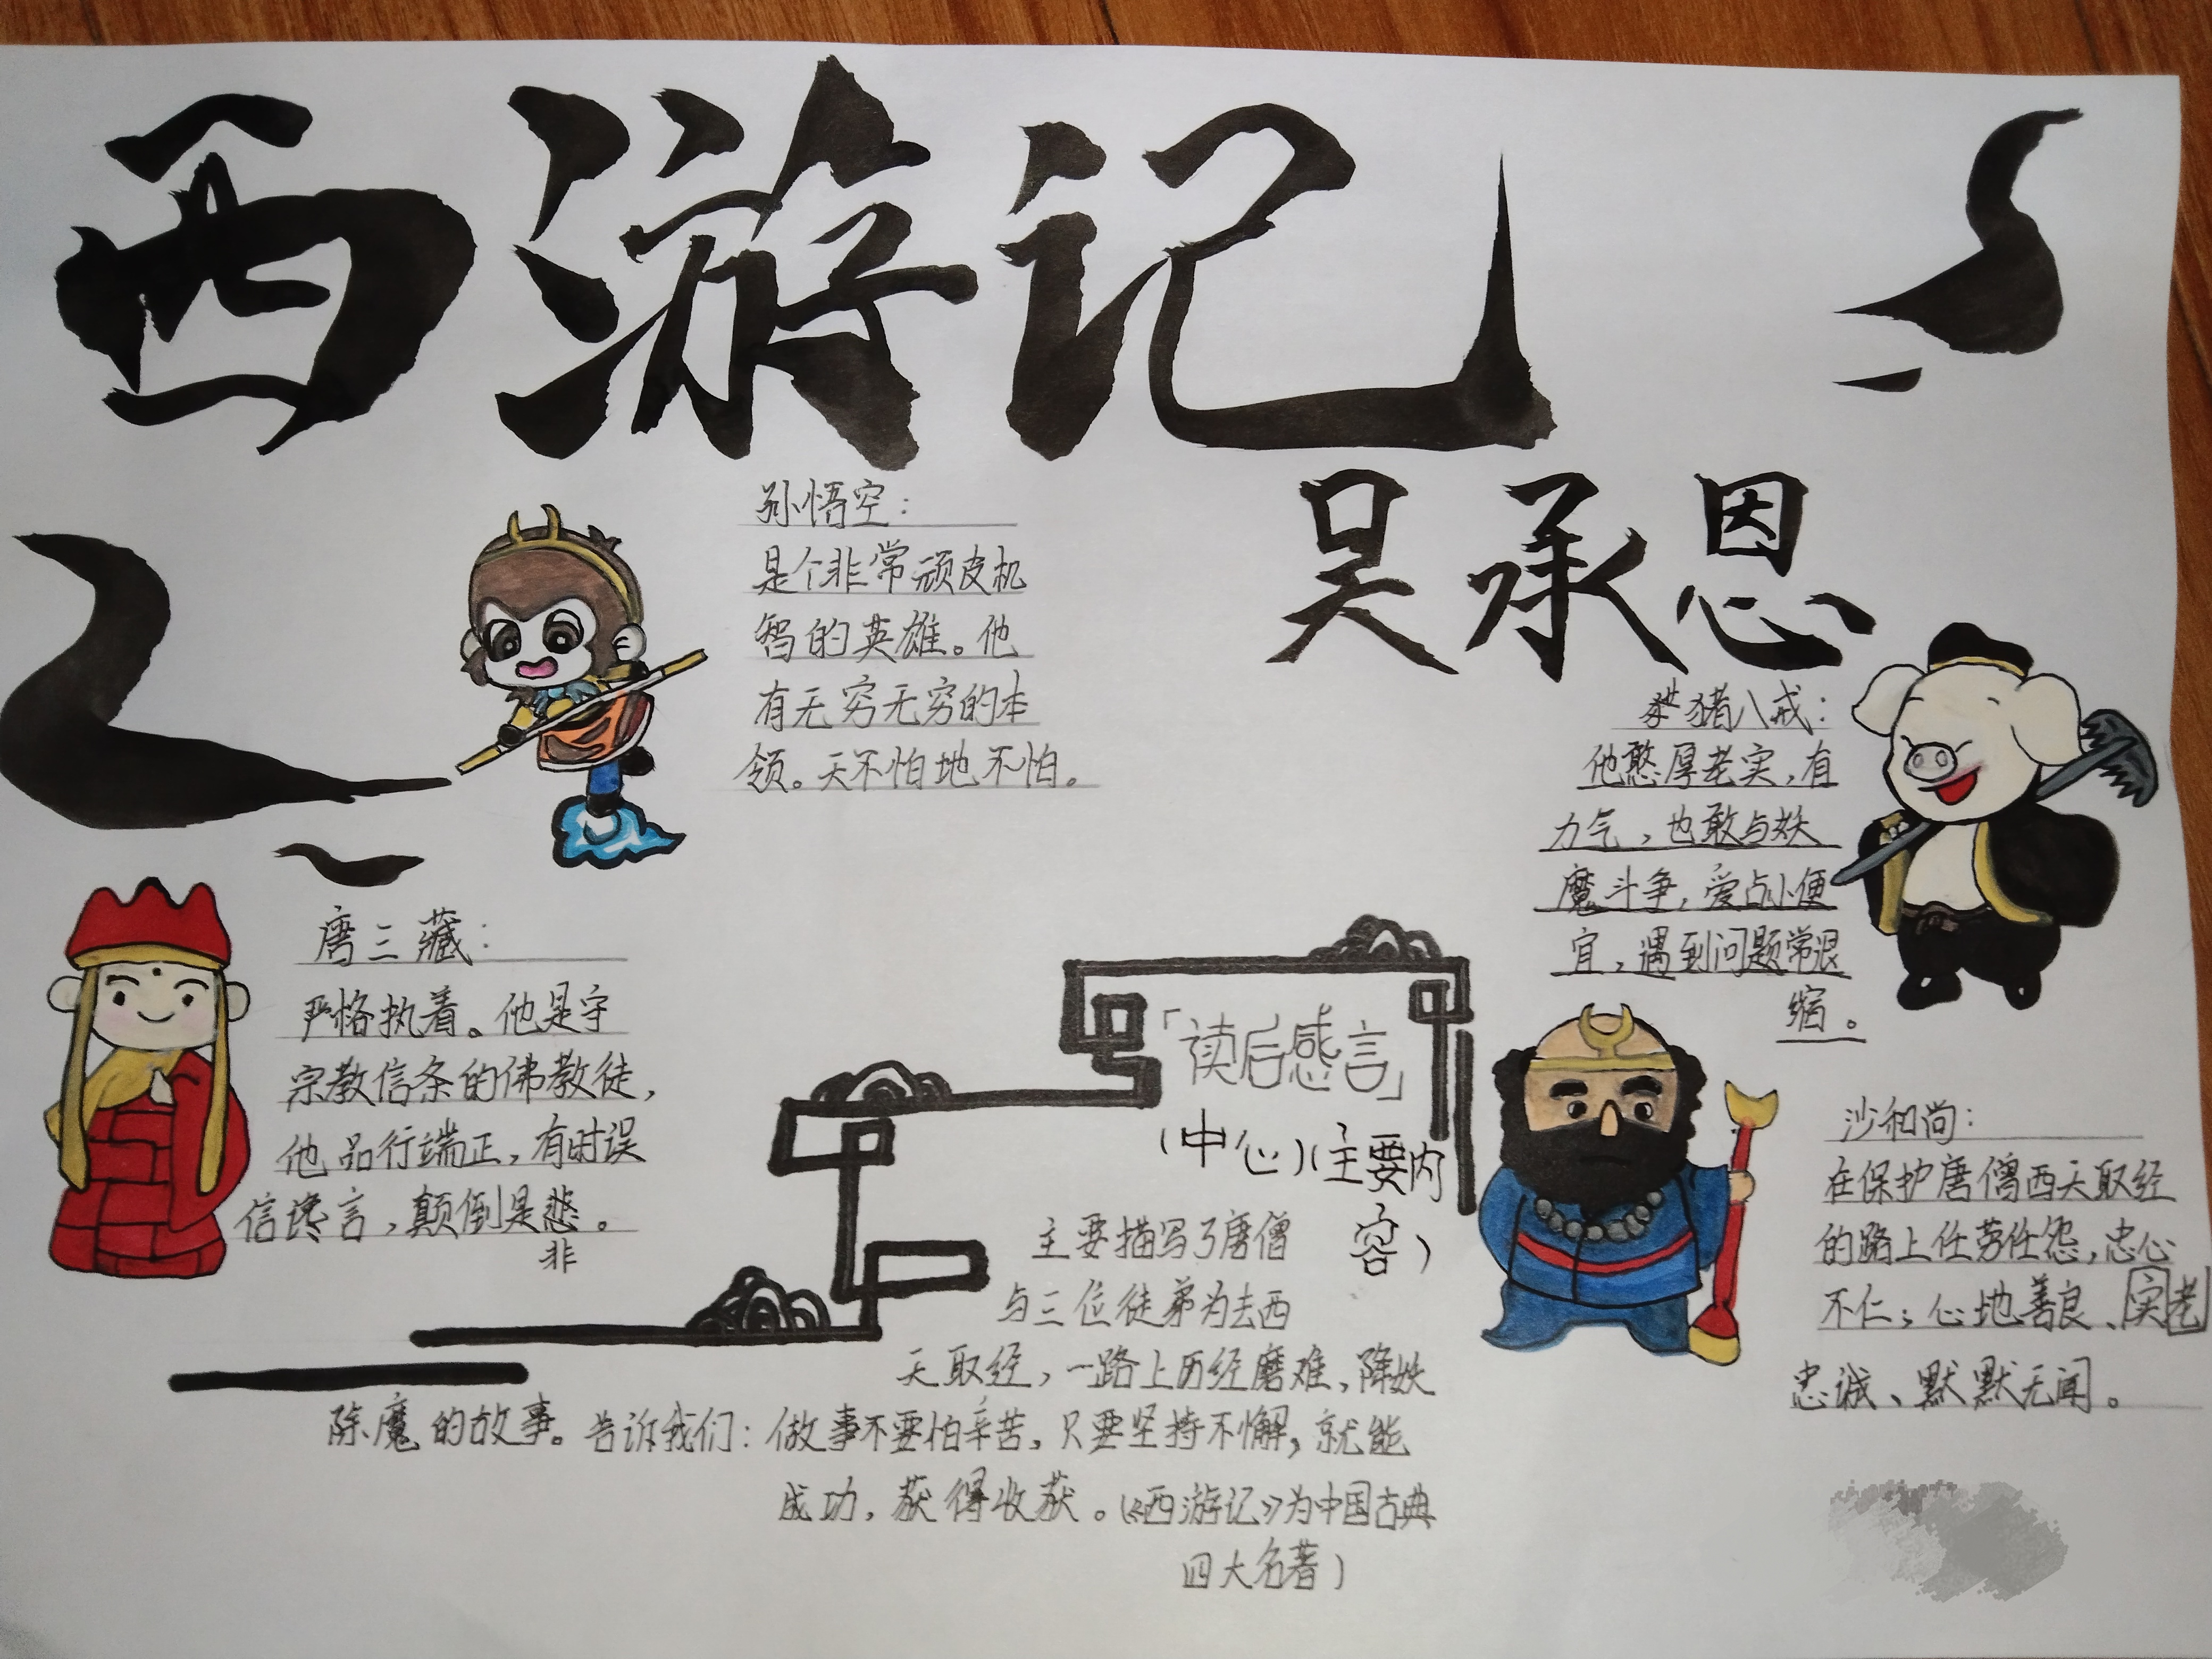 西游记
吴承恩
孙悟空：
是个非常顽皮机
智的英雄。他
有无穷无穷的本
领。天不怕地不怕。
猪八戒：
他憨厚老实，有
力气，也敢与妖
魔斗争，爱占小便
宜，遇到问题常退
缩。
唐三藏：
严格执着。他是守
宗教信条的佛教徒，
他品行端正，有时误
信谗言，颠倒是悲。
非
沙和尚：
在保护唐僧西天取经
的路上任劳任怨，忠心
不仁；心地善良、实老
忠诚、默默无闻。
「读后感言」
（中心）（主要内
容）
主要描写了唐僧
与三位徒弟为去西
天取经，一路上历经磨难，降妖
除魔的故事。告诉我们：做事不要怕辛苦，只要坚持不懈，就能
成功，获得收获。（《西游记》为中国古典
四大名著）